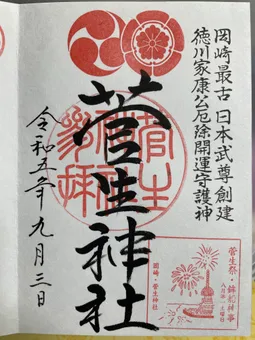 岡崎最古 日本武尊創建
徳川家康公厄除開運守護神
菅生神社
令和五年九月三日
菅生祭・鉾船神事
岡崎・菅生神社